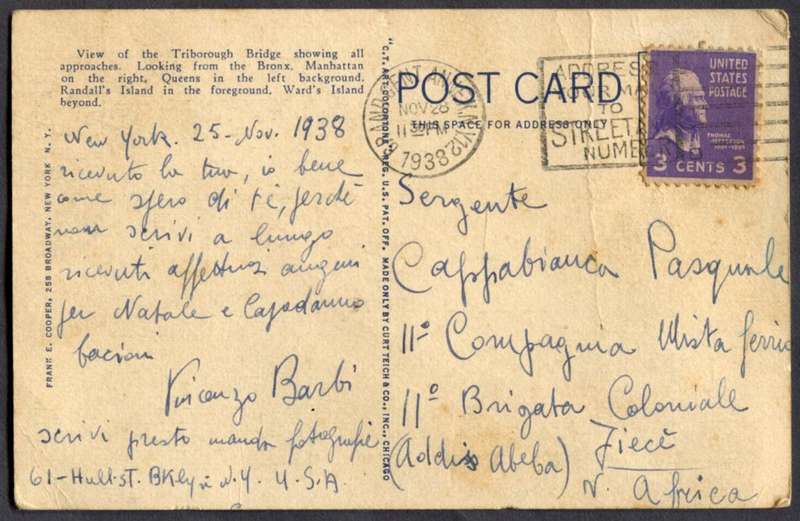 View of the Triborough Bridge showing all
approaches. Looking from the Bronx. Manhattan
on the right, Queens in the left background.
Randall's Island in the foreground. Ward's Island
beyond.
New York. 25-Nov. 1938
ricevuto la tua, io bene
come spero di te, perchè
non scrivi a lungo
ricevuti affettuosi auguri
per Natale e Capodanno
bacioni
Vincenzo Barbi
scrivi presto manda fotografie
61-Hull-st. BKly N.Y. U.S.A.
FRANK E. COOPER, 258 BROADWAY, NEW YORK N. Y.
"C.T. ART-COLORTONE" REG. U.S. PAT. OFF. MADE ONLY BY CURT TEICH & CO., INC., CHICAGO
POST CARD
THIS SPACE FOR ADDRESS ONLY
NOV 26
1938
TO
STREET
NUMBER
UNITED
STATES
POSTAGE
THOMAS
JEFFERSON
3 CENTS 3
Sergente
Cappabianca Pasquale
11° Compagnia Mista
11° Brigata Coloniale
(Addis Abeba)
Africa